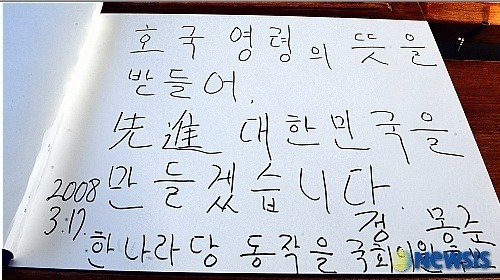 호국 영령의 뜻을
받들어,
先進 대한민국을
만들겠습니다.
2008
3.17.
정 몽준
한나라당 동작을 국회의원
newsis